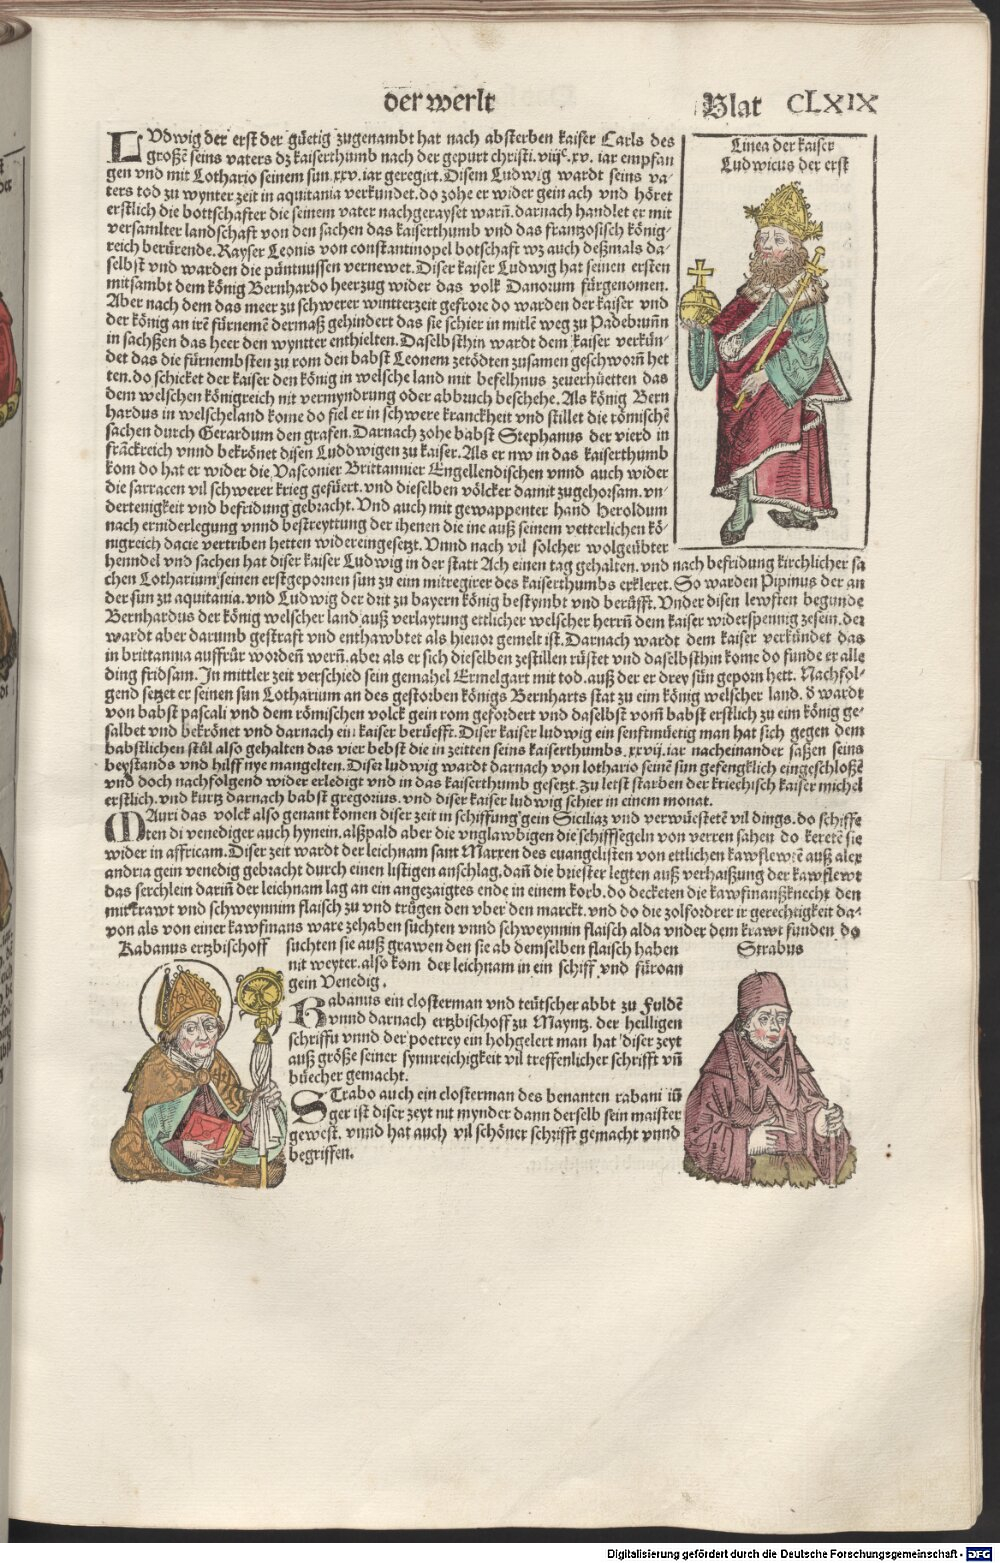 der werlt
Blat CLXIX
LVdwig der erst der guͤetig zugenambt hat nach absterben kaiser Carls des
großẽ seins vaters dz kaiserthumb nach der gepurt christi. viijᶜ.xv. iar empfan
gen vnd mit Lothario seinem sun .xxv. iar geregirt. Disem Ludwig wardt seins va-
ters tod zu wynter zeit in aquitania verkundet. do zohe er wider gein ach vnd hoͤret
erstlich die bottschafter die seinem vater nachgerayset warñ. darnach handlet er mit
versamlter landschaft von den sachen das kaiserthumb vnd das frantzosisch koͤnig-
reich beruͤrende. Kayser Leonis von constantinopel botschaft wz auch deßmals da-
selbst vnd warden die puͤntnussen vernewet. Diser kaiser Ludwig hat seinen ersten
mitsambt dem koͤnig Bernhardo heerzug wider das volk Danorum fuͤrgenomen.
Aber nach dem das meer zu schwerer wintterzeit gefrore do warden der kaiser vnd
der koͤnig an irẽ fuͤrnemẽ dermaß gehindert das sie schier in mitlẽ weg zu Padebruñn
in sachßen das heer den wyntter enthielten. Daselbsthin wardt dem kaiser verkuͤn-
det das die fuͤrnembsten zu rom den babst Leonem zetoͤdten zusamen geschworñ het
ten. do schicket der kaiser den koͤnig in welsche land mit befelhnus zeuerhuͤetten das
dem welschen koͤnigreich nit vermyndrung oder abbruch beschehe. Als koͤnig Bern
hardus in welscheland kome do fiel er in schwere kranckheit vnd stillet die roͤmischẽ
sachen durch Gerardum den grafen. Darnach zohe babst Stephanus der vierd in
franckreich vnnd bekroͤnet disen Luddwigen zu kaiser. Als er nw in das kaiserthumb
kom do hat er wider die Vasconier Brittannier Engellendischen vnnd auch wider
die sarracen vil schwerer krieg gefuͤert. vnd dieselben voͤlcker damit zu gehorsam. vn-
dertenigkeit vnd befridung gebracht. Vnd auch mit gewappenter hand Heroldum
nach erniderlegung vnnd bestreyttung der ihenen die ine auß seinem vetterlichen koͤ-
nigreich dacie vertriben hetten widereingesetzt. Vnnd nach vil solcher wolgeuͤbter
henndel vnd sachen hat diser kaiser Ludwig in der statt Ach einen tag gehalten. vnd nach befridung kirchlicher sa
chen Lotharium seinen erstgepornen sun zu eim mitregirer des kaiserthumbs erkleret. So warden Pipinus der an
der sun zu aquitania. vnd Ludwig der drit zu bayern koͤnig bestymbt vnd beruͤfft. Vnder disen lewften begunde
Bernhardus der koͤnig welscher land auß verlaytung ettlicher welscher herrñ dem kaiser widerspennig zesein. der
wardt aber darumb gestraft vnd enthawbtet als hieuor gemelt ist. Darnach wardt dem kaiser verkuͤndet das
in brittannia auffruͤr wordeñ werñ. aber als er sich dieselben zestillen ruͤstet vnd daselbsthin kome do funde er alle
ding fridsam. In mittler zeit verschied sein gemahel Ermelgart mit tod. auß der er drey suͤn geporn hett. Nachfol-
gend setzet er seinen sun Lotharium an des gestorben koͤnigs Bernharts stat zu eim koͤnig welscher land. d̾ wardt
von babst pascali vnd dem roͤmischen volck gein rom gefordert vnd daselbst vom̃ babst erstlich zu eim koͤnig ge-
salbet vnd bekroͤnet vnd darnach ein kaiser beruͤefft. Diser kaiser ludwig ein senftmuͤetig man hat sich gegen dem
babstlichen stuͤl also gehalten das vier bebst die in zeitten seins kaiserthumbs .xxvij. iar nacheinander saßen seins
beystands vnd hilff nye mangelten. Diser ludwig wardt darnach von lothario seinẽ sun gefengklich eingeschloßẽ
vnd doch nachfolgend wider erledigt vnd in das kaiserthumb gesetzt. Zu letst starben der kriechisch kaiser michel
erstlich. vnd kurtz darnach babst gregorius. vnd diser kaiser ludwig schier in einem monat.
MAuri das volck also genant komen diser zeit in schiffung gein Siciliaz vnd verwuͤestetẽ vil dings. do schiffe
ten di venediger auch hynein. alßpald aber die vnglawbigen die schiffsegeln von verren sahen do keretẽ sie
wider in affricam. Diser zeit wardt der leichnam sant Marxen des euangelisten von ettlichen kawflewtẽ auß alex
andria gein venedig gebracht durch einen listigen anschlag. dañ die briester legten auß verhaißung der kawflewt
das serchlein dariñ der leichnam lag an ein angezaigtes ende in einem korb. do decketen die kawfmanßknecht den
mit krawt vnd schweynnim flaisch zu vnd truͤgen den vber den marckt. vnd do die zolfordrer ir gerechtigkeit da-
von als von einer kawfmans ware zehaben suchten vnnd schweynnin flaisch alda vnder dem krawt funden do
suchten sie auß grawen den sie ab demselben flaisch haben
nit weyter. also kom der leichnam in ein schiff vnd fuͤroan
gein Venedig.
Rabanus ein closterman vnd teuͤtscher abbt zu Fuldẽ
vnnd darnach ertzbischoff zu Mayntz. der heilligen
schrifft vnnd der poetrey ein hohgelert man hat diser zeyt
auß groͤße seiner synnreichigkeit vil treffenlicher schrifft vñ
buͤecher gemacht.
STrabo auch ein closterman des benanten rabani iuͤ
ger ist diser zeyt nit mynder dann derselb sein maister
gewest. vnnd hat auch vil schoͤner schrifft gemacht vnnd
begriffen.
Linea der kaiser
Ludwicus der erst
Rabanus ertzbischoff
Strabus
Digitalisierung gefördert durch die Deutsche Forschungsgemeinschaft - DFG